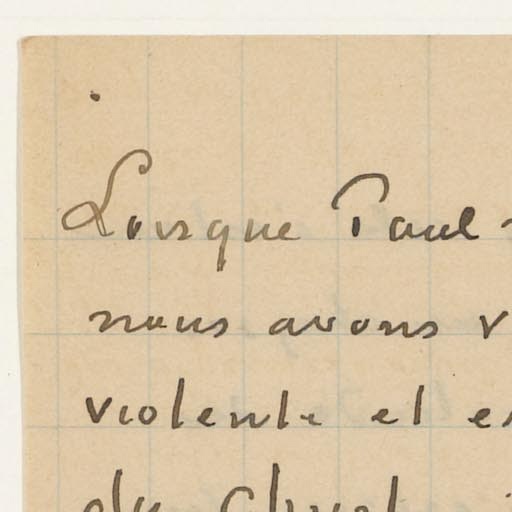 Lorsque Paul
nous avons v
violente et es
du Christ